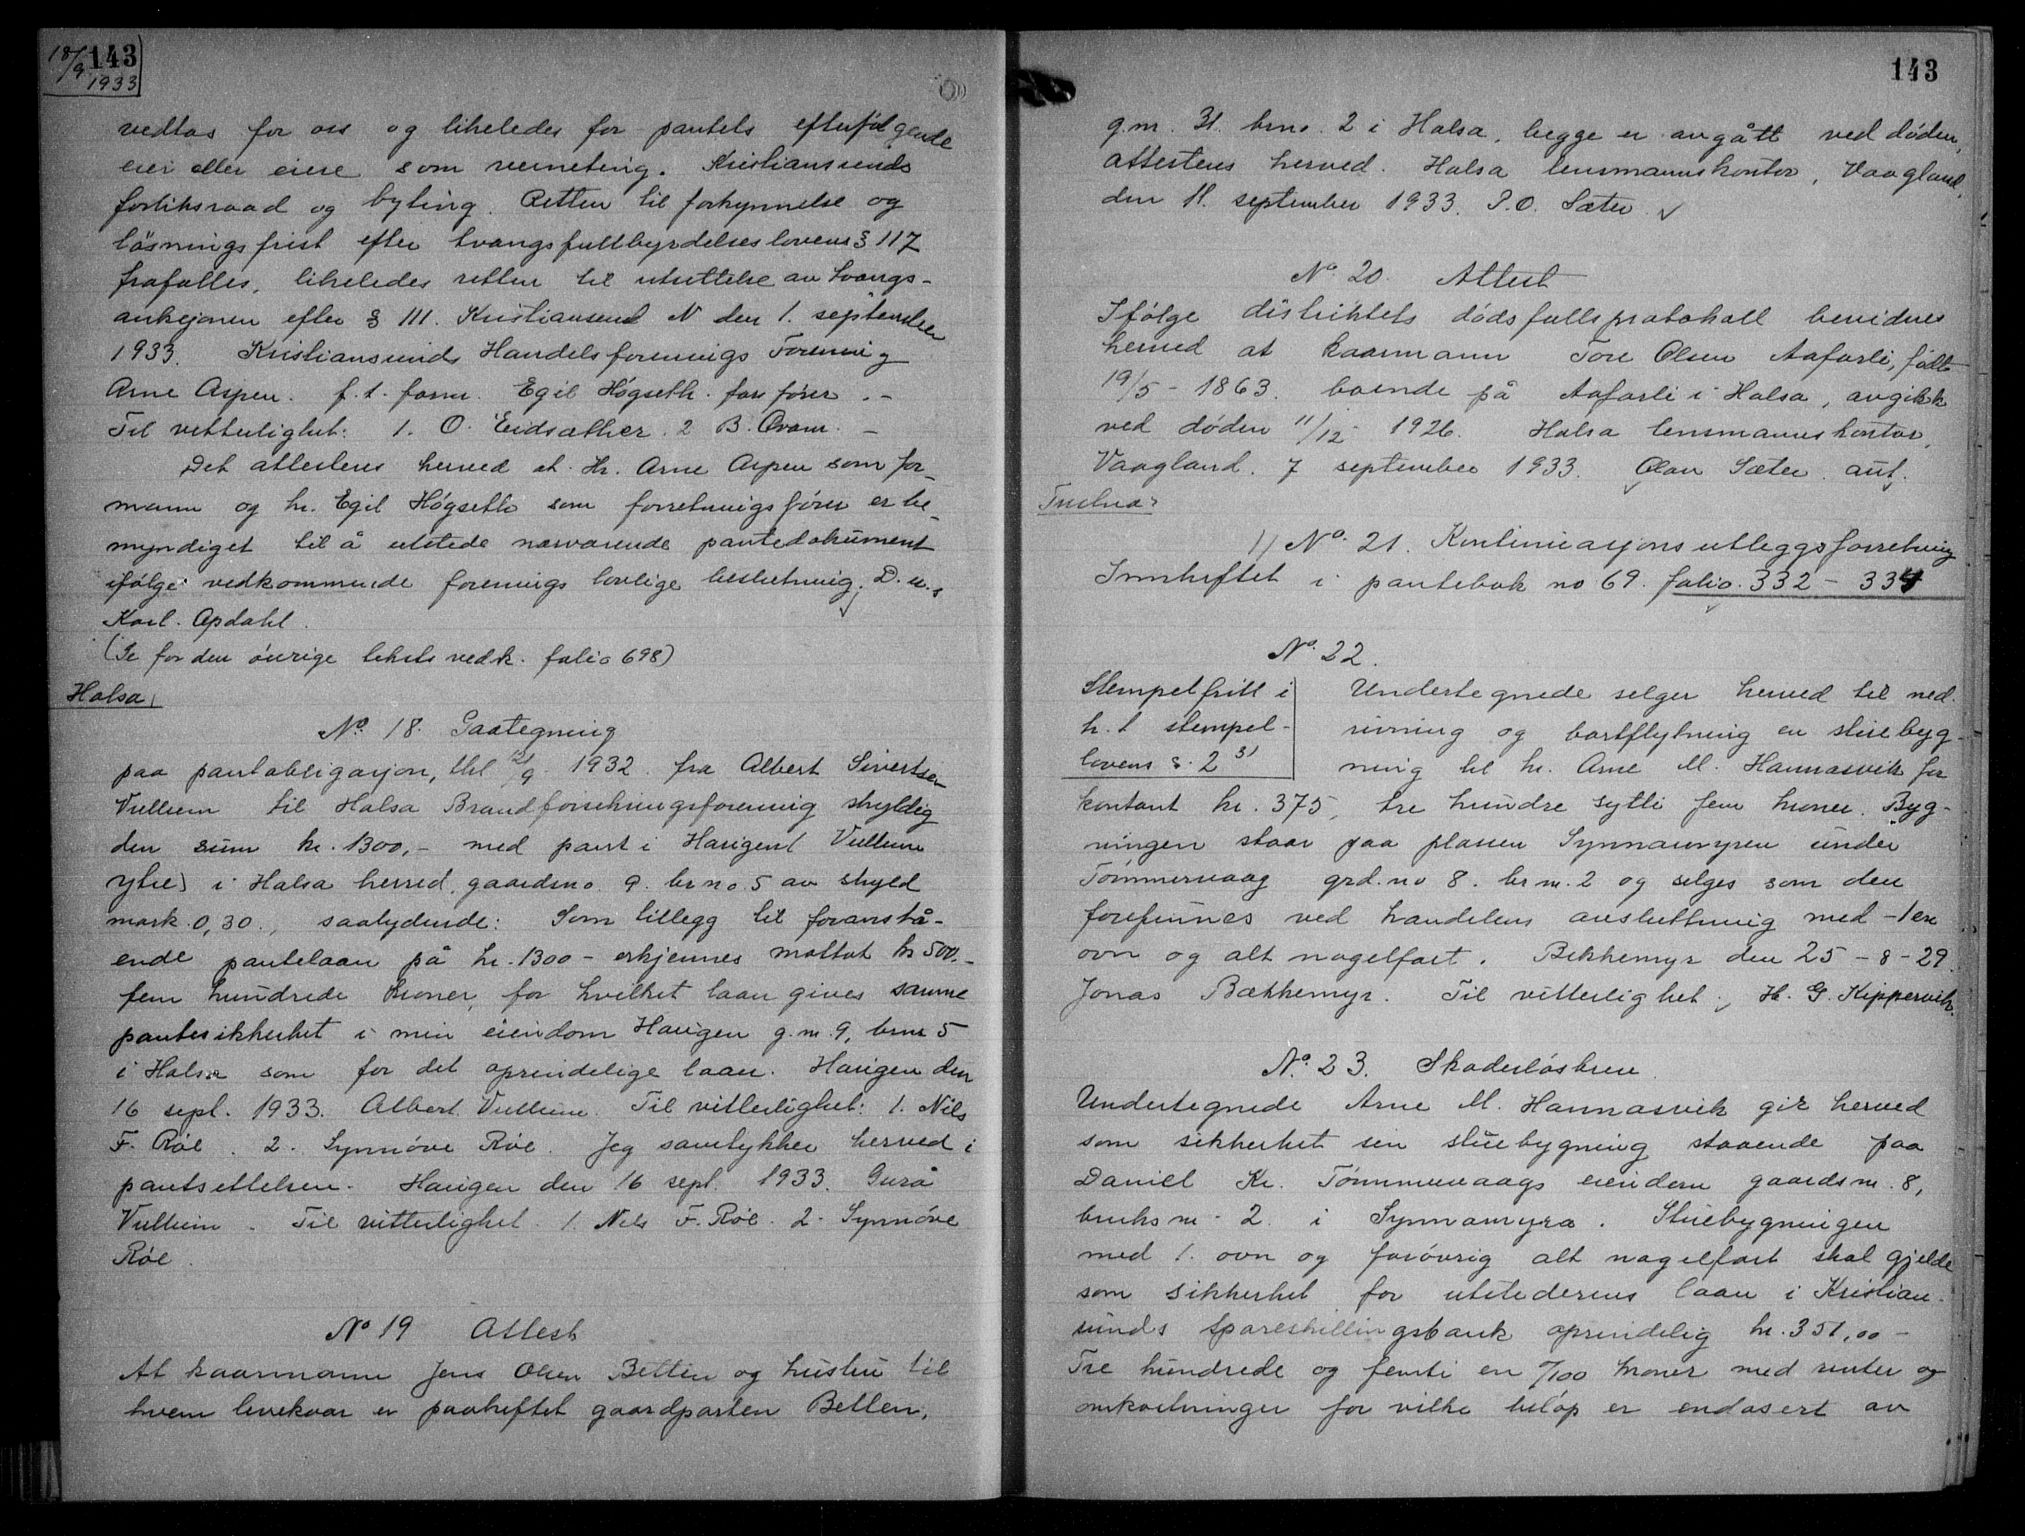 18/9 143
1933
vedtas for oss og likeledes for pantets efterfølgende
eier eller eiere som verneting. Kristiansunds
forliksraad og byting. Retten til forkynnelse og
løsningsfrist efter tvangsfullbyrdelseslovens § 117
frafalles, likeledes retten til utsettelse av tvangs-
auksjonen efter § 111. Kristiansund N den 1. september
1933. Kristiansunds Handelsforenings Forening
Arne Aspen. f.t. form. Egil Høgseth. forr fører. -
Til vitterlighet: 1. O. Eidsæther. 2 B. Qvam. -
Det attesteres herved at Hr. Arne Aspen som for-
mann og hr. Egil Høgseth som forretningsfører er be-
myndiget til å utstede nærværende pantedokument
ifølge vedkommende forenings lovlige beslutning. D. u. s
Karl Opdahl.
(Se for den øvrige teksts vedk. folio 698)
Halsa
No. 18. Paategning
paa pantobligasjon, thl 21/9 1932 fra Albert Sivertsen
Vullum til Halsa Brandforsikringsforening skyldig
den sum kr. 1300,- med pant i Haugen (Vullum
ytre) i Halsa herred, gaardsno. 9. brno. 5 av skyld
mark 0,30., saalydende: Som tillegg til foranstå-
ende pantelaan på kr. 1300 - erkjennes mottat kr 500.-
fem hundrede kroner, for hvilket laan gives samme
pantesikkerhet i min eiendom Haugen g.nr. 9, brnr 5
i Halsa som for det oprindelige laan. Haugen den
16 sept. 1933. Albert Vullum. Til vitterlighet: 1. Nils
F. Røe. 2. Synnøve Røe. Jeg samtykker herved i
pantsettelsen. Haugen den 16 sept. 1933. Gurå
Vullum. Til vitterlighet. 1. Nils F. Røe. 2. Synnøve
Røe.
No 19 Attest
At kaarmann Jens Olsen Betten og hustru til
hvem levekaar er paaheftet gaardparten Betten,
143
g.nr. 31. brno. 2 i Halsa, begge er avgått ved døden,
attesteres herved. Halsa lensmannskontor, Vaagland,
den 11. september 1933. P.O. Sæter
No. 20. Attest
Ifølge distriktets dødsfallsprotokoll bevidnes
herved at kaarmann Tore Olsen Aafarli, født
19/5 - 1863. boende på Aafarli i Halsa, avgikk
ved døden 11/12 1926. Halsa lensmannskontor,
Vaagland. 7 september 1933. Olav Sæter aut.
Tustna:
1) No. 21. Kontinuasjonsutleggsforretning
Innheftet i pantebok no 69. folio. 332 - 334
No. 22.
Stempelfritt i
h. t stempel-
lovens § 2 31
Undertegnede selger herved til ned-
rivning og bortflytning en stuebyg-
ning til hr. Arne M. Hannasvik for
kontant kr. 375, tre hundre sytti fem kroner. Byg-
ningen staar paa plassen Synnamyren under
Tømmervaag grd. no 8. br nr. 2 og selges som den
forefinnes ved handelens avslutning med - 1 en
ovn og alt nagelfast. Bekkemyr den 25 - 8 - 29.
Jonas Bækkemyr. Til vitterlighet. H. G. Kippervik.
No. 23. Skadesløsbrev
Undertegnede Arne M. Hannasvik gir herved
som sikkerhet sin stuebygning staaende paa
Daniel Kr. Tømmervaags eiendom gaardsnr. 8,
bruks nr. 2. i Synnamyra. Stuebygningen
med 1. ovn og forøvrig alt nagelfast skal gjelde
som sikkerhet for utstederens laan i Kristian-
sunds Spareskillingsbank oprindelig kr. 351,00 -
Tre hundrede og femti en 0/100 kroner med renter og
omkostninger for vilke beløp er endosert av